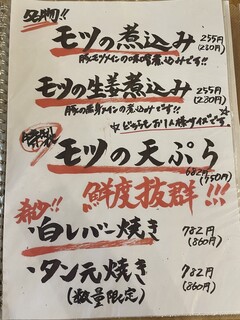 名物!!
モツの煮込み 255円
(280円)
豚モツメインの味噌煮込みです!!
モツの生姜煮込み 255円
(280円)
豚の直腸メインの煮込みです!!
☆どちらもお1人様サイズです☆
特製
モツの天ぷら
682円
(750円)
鮮度抜群!!!
希少!!
・白レバー焼き 782円
(860円)
・タン元焼き 782円
(860円)
(数量限定)